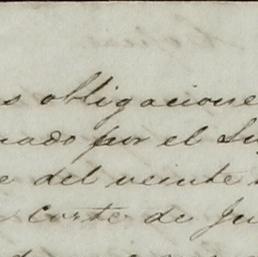 s obligacione
nado por el Su
e del veinte
Corte de Ju